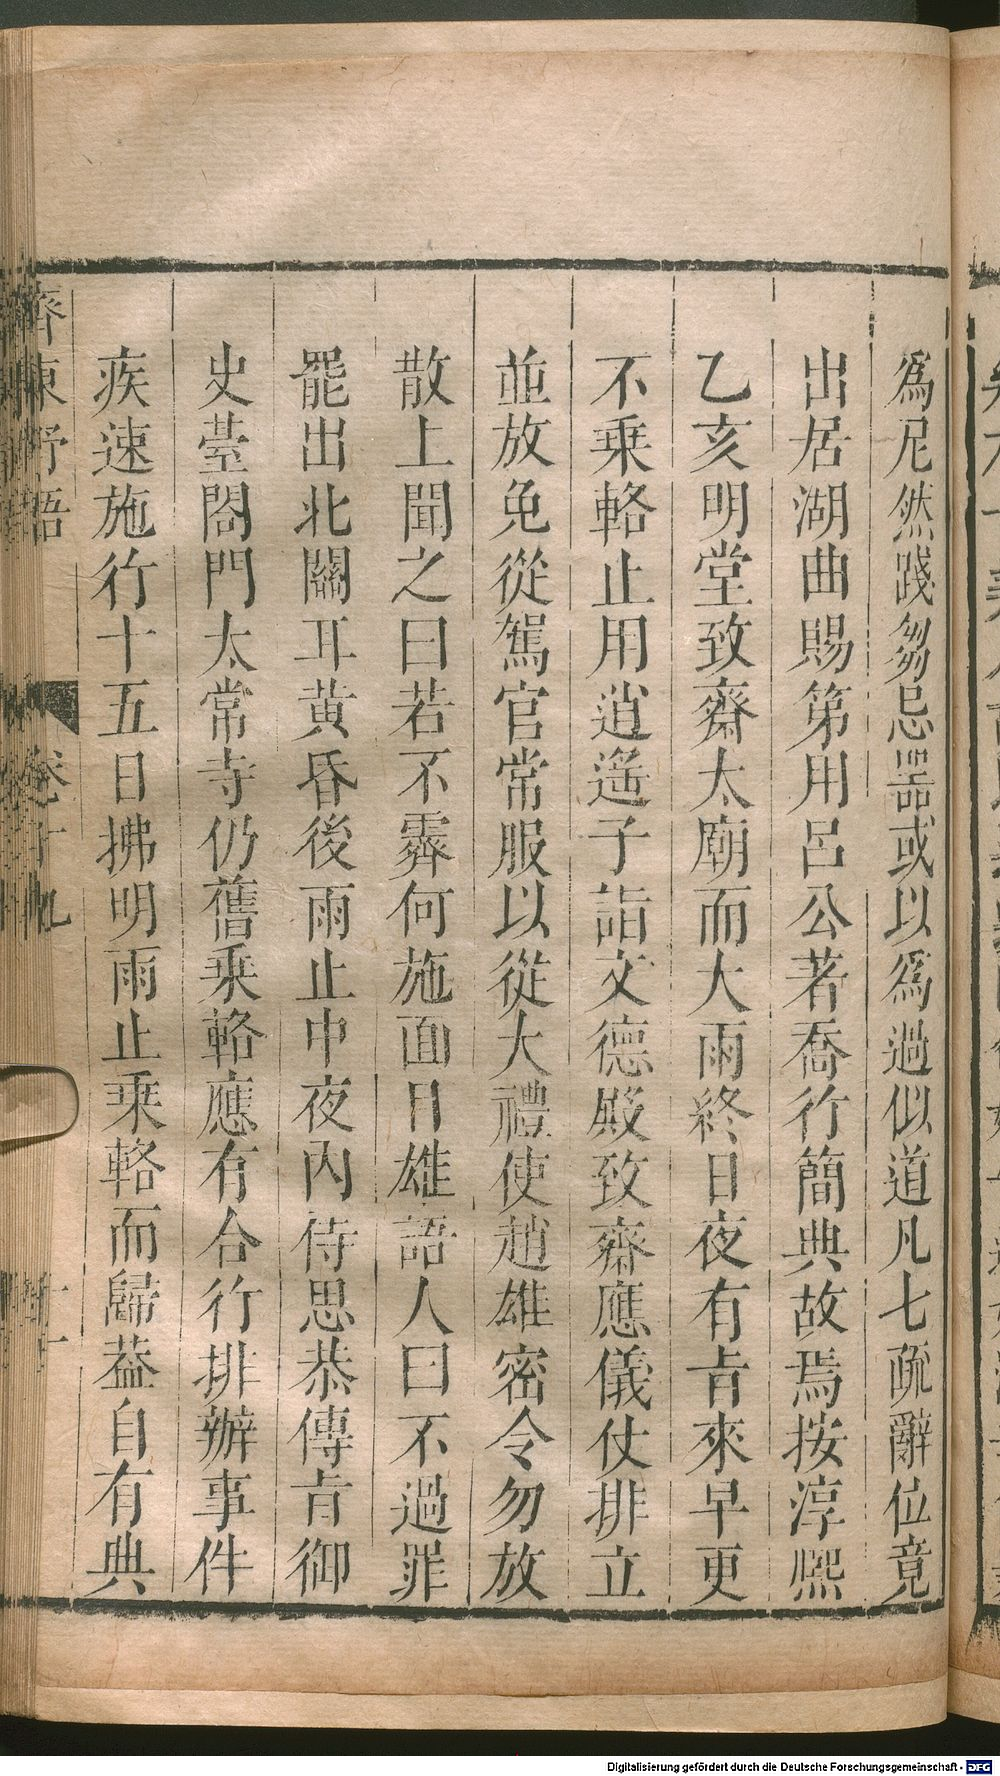 爲尼然踐芻忌器或以爲過似道凡七疏辭位竟
出居湖曲賜第用呂公著喬行簡典故焉按淳熈
乙亥明堂致齋太廟而大雨終日夜有㫖來早更
不乗輅止用逍遥子詣文德殿致齋應儀仗排立
並放免從駕官常服以從大禮使趙雄密令勿放
散上聞之曰若不霽何施面目雄語人曰不過罪
罷出北關耳黄昏後雨止中夜内侍思恭傳㫖御
史臺閤門太常寺仍舊乗輅應有合行排辦事件
疾速施行十五日拂明雨止乗輅而歸葢自有典
齊東野語
卷十九
十一
Digitalisierung gefördert durch die Deutsche Forschungsgemeinschaft - DFG